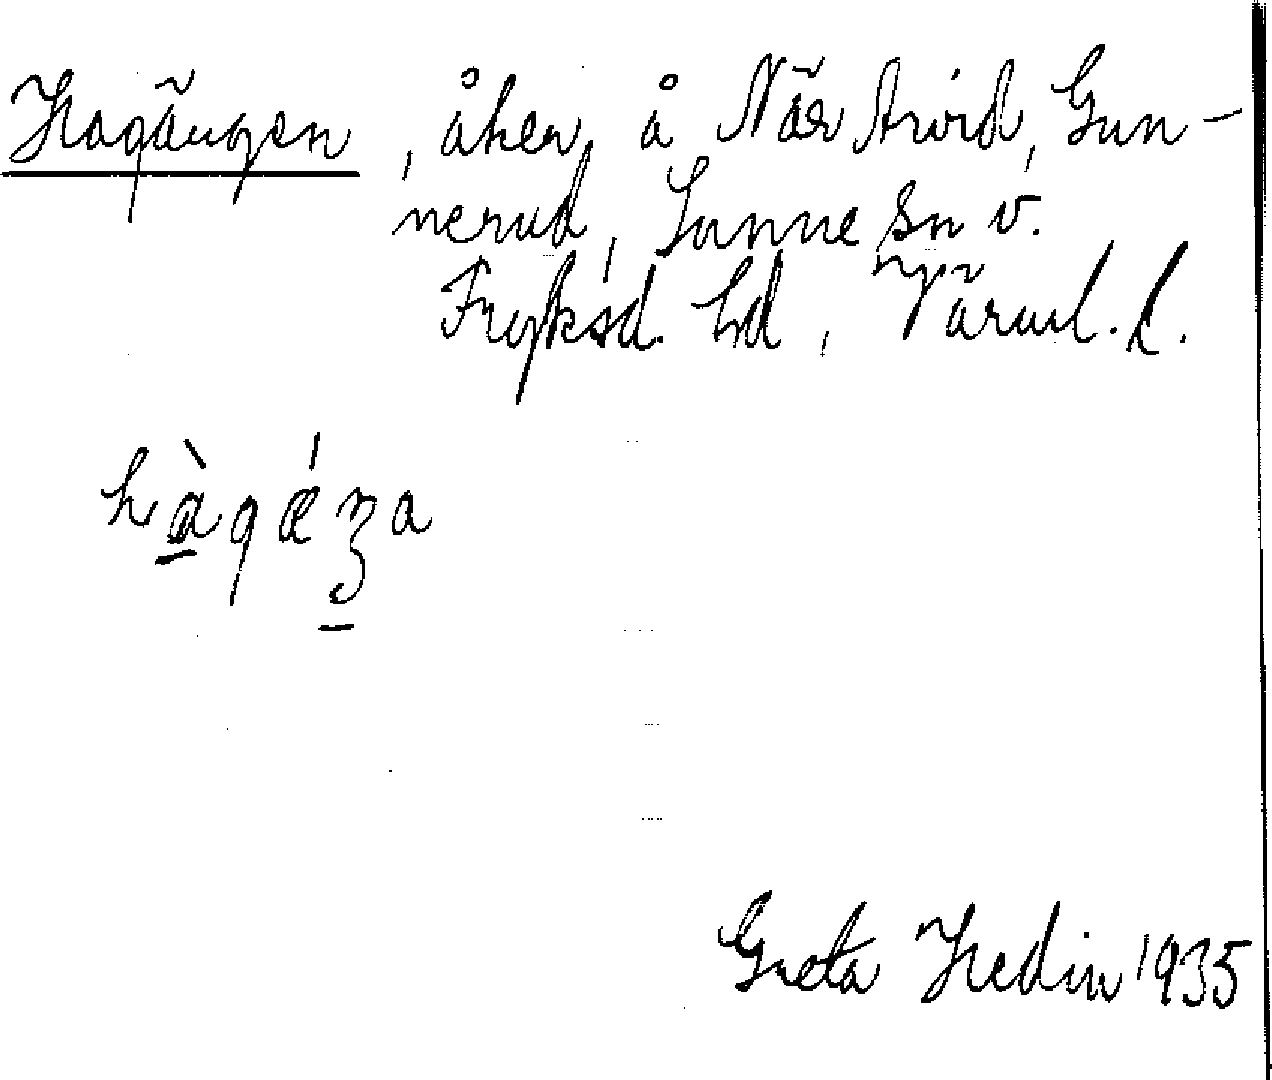 Hagängen, åker å När Arvid, Gun-
nerud, Sunne Sn v.
Fryksd. hd, Värml. l.
hàgǽʒa
Greta Hedin 1935